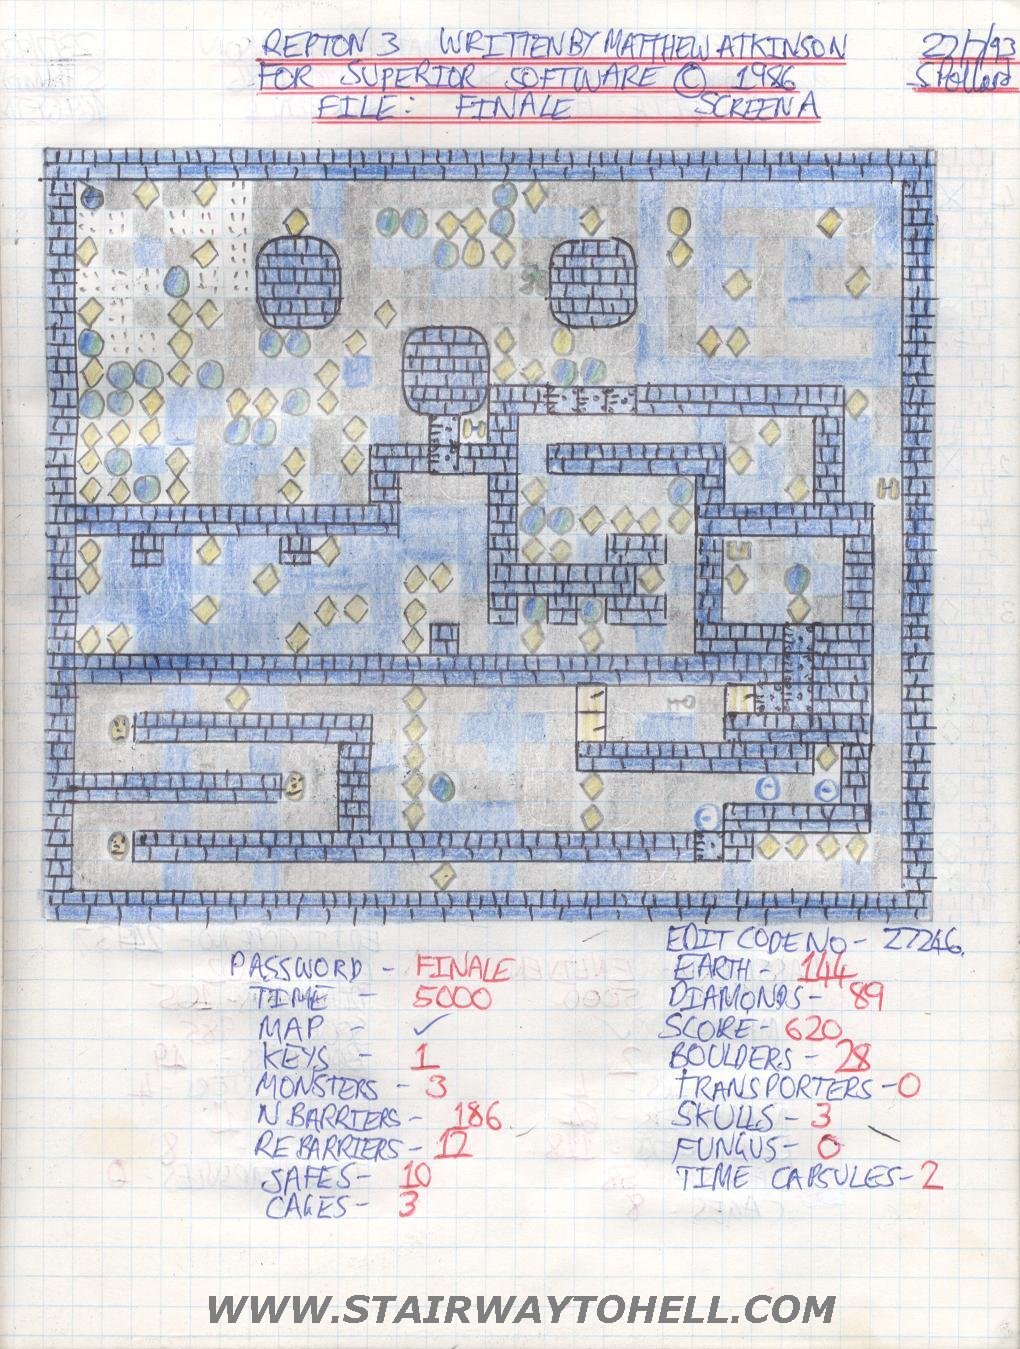 REPTON 3 WRITTEN BY MATTHEW ATKINSON
FOR SUPERIOR SOFTWARE © 1986
FILE: FINALE SCREEN A
27/7/93
S Pollard
PASSWORD - FINALE
TIME - 5000
MAP - ✓
KEYS - 1
MONSTERS - 3
N BARRIERS - 186
RE BARRIERS - 12
SAFES - 10
CAGES - 3
EDIT CODE NO - 27246.
EARTH - 144
DIAMONDS - 89
SCORE - 620
BOULDERS - 28
TRANSPORTERS - 0
SKULLS - 3
FUNGUS - 0
TIME CAPSULES - 2
WWW.STAIRWAYTOHELL.COM